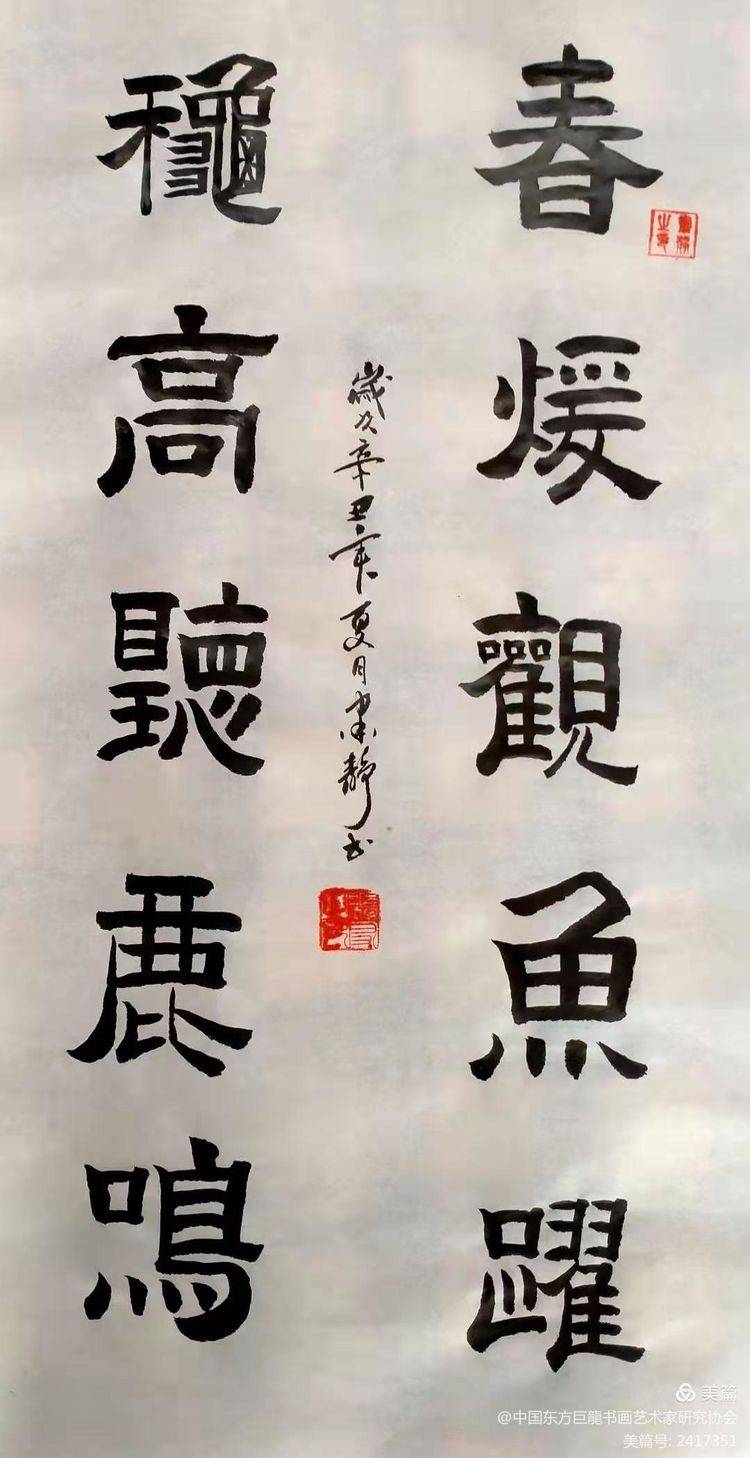 春煖觀魚躍
龝高聽鹿鳴
歲次辛丑年夏月静书
美篇
@中国东方巨龍书画艺术家研究协会
美篇号: 2417351